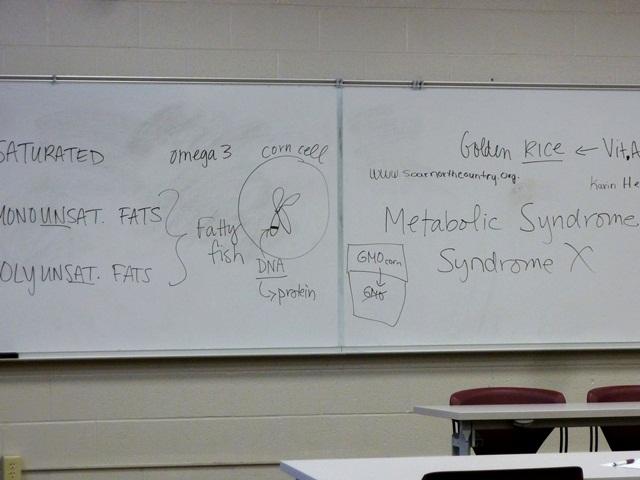 SATURATED
omega 3
corn cell
MONOUNSAT. FATS
Fatty
fish
POLYUNSAT. FATS
DNA
↳protein
Golden RICE ← Vit.A
www.soarnorthcountry.org.
Karin He
Metabolic Syndrome
Syndrome X
GMO corn